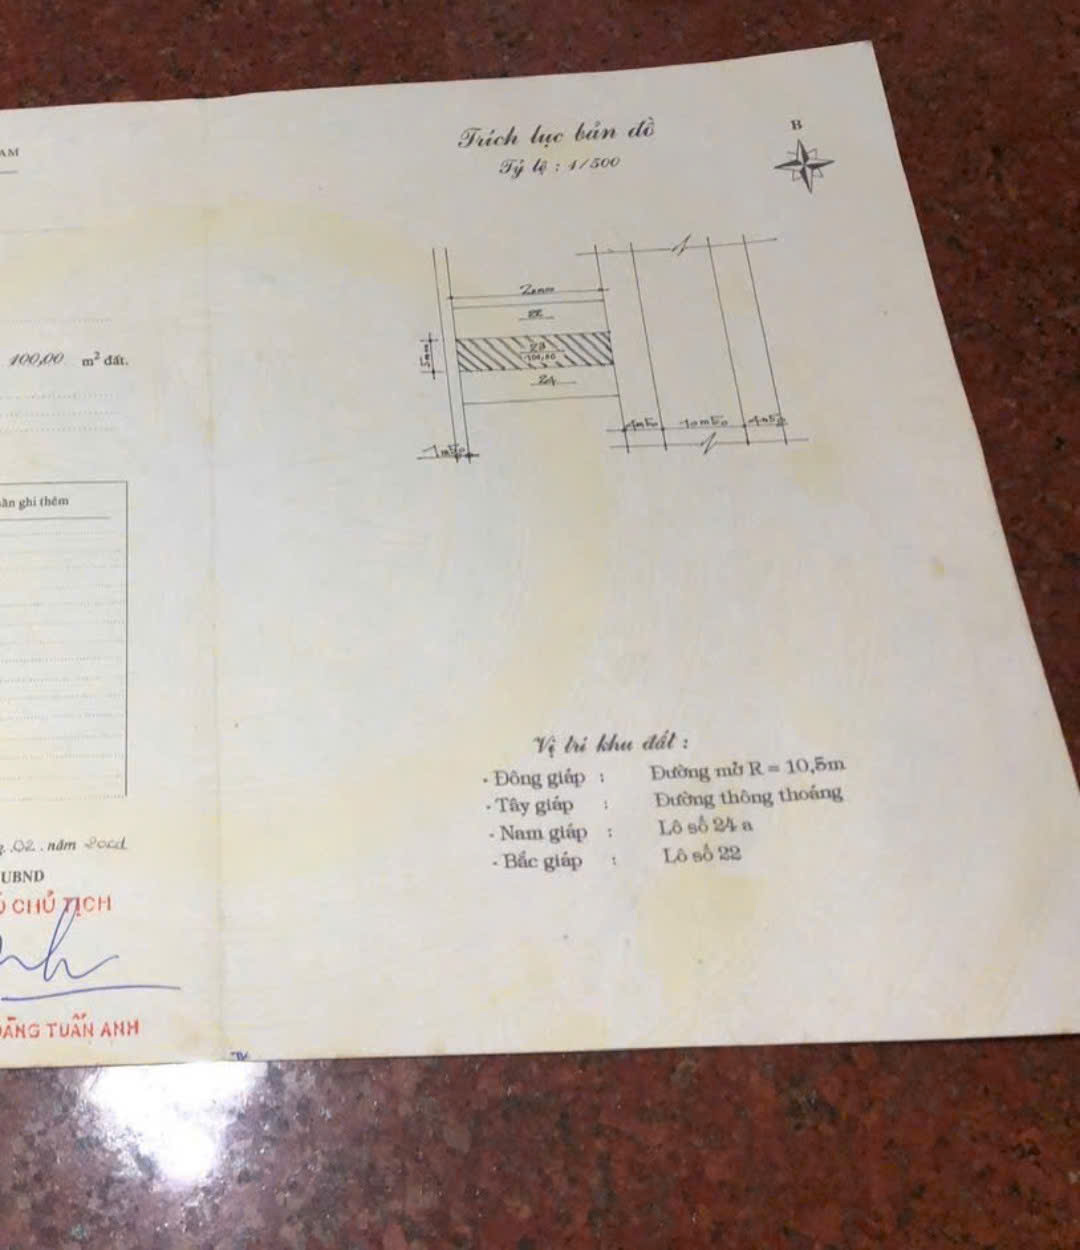 AM
Trích lục bản đồ
Tỷ lệ : 1/500
B
100,00 m² đất.
20m00
22
5m00
23
100,00
24
1m50
4m50 10m50 4m50
ần ghi thêm
Vị trí khu đất :
- Đông giáp : Đường mở R = 10,5m
- Tây giáp : Đường thông thoáng
- Nam giáp : Lô số 24 a
- Bắc giáp : Lô số 22
02 . năm
UBND
CHỦ TỊCH
TUẤN ANH